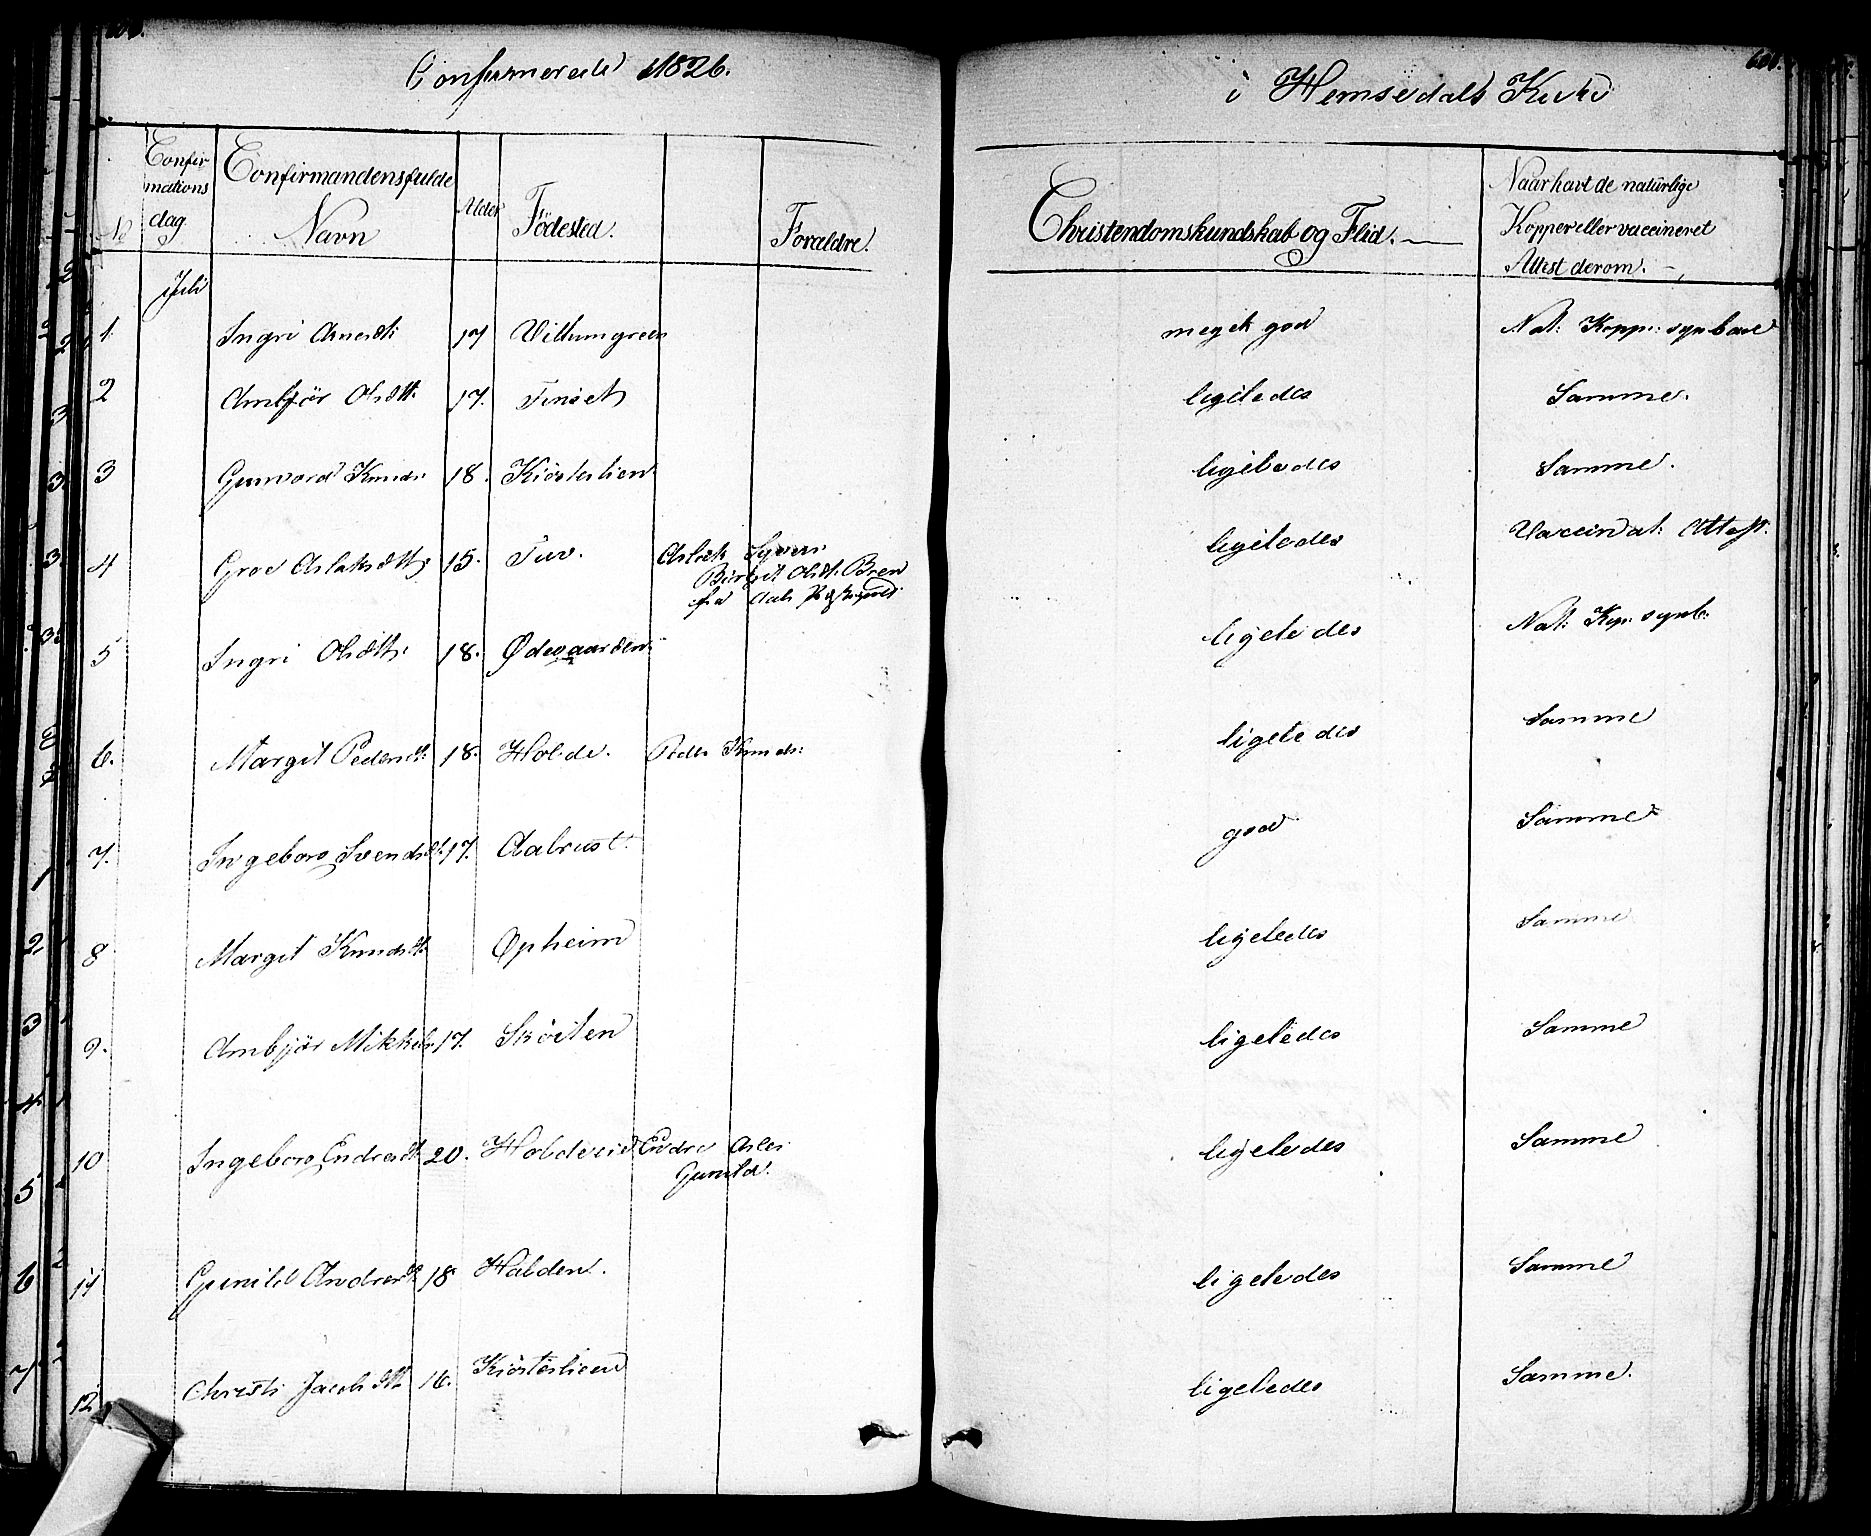 Confirmerede 1826.
i Hemsedals Kirke
No
Confir-
mations
dag.
Confirmandens fulde
Navn
Alder
Födested.
Forældre.
Christendomskundskab og Flid.
Naar havt de natürlige
Kopper eller vaccineret
Attest derom.
Juli
1. Ingri Arnesdt: 17 Ulltumgreen megit god Nat: Kopp: synbare
2 Ambjör Olsdtt. 17. Tinset ligeledes Samme.
3 Gunvord Knuds: 18. Kiösterlien ligeledes Samme.
4 Groe Aslaksdtt: 15. Tuv. Aslak Syvers: ligeledes Vaccin at: Attest.
Birgit Olsdt: Bren
fra Aals
5 Ingri Olsdtt: 18. Ødegaarden ligeledes Nat: Kop: synb:
6. Margit Pedersdt: 18. Holde. Peder Knuds: ligeledes Samme
7. Ingeborg Svendsdt: 17. Aalrust. god Samme
8 Margit Knudsdtt. Opheim ligeledes Samme
9. Ambjör Mikkels: 17. Sköiten ligeledes Samme
10 Ingeborg Endresdt 20. Holdeeie Endre Asles: ligeledes Samme
Gunild.
11 Gunild Andresdt 18 Halden. ligeledes Samme
12 Christi Jacobsdtt 16. Kiösterlien ligeledes Samme.